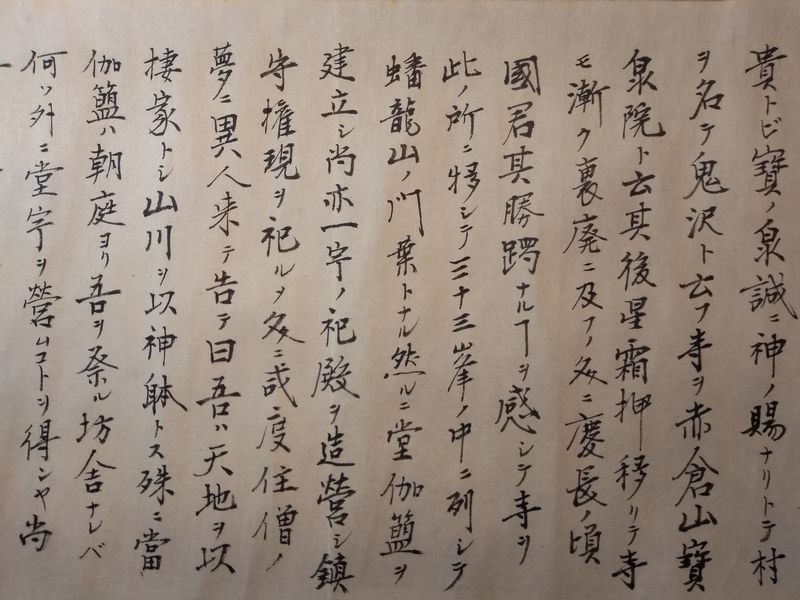 貴トビ寳ノ泉誠ニ神ノ賜ナリトテ村
ヲ名テ鬼沢ト云フ寺ヲ赤倉山寳
泉院ト云其後星霜押移リテ寺
モ漸ク裏廃ニ及フノ処ニ慶長ノ頃
國君其勝躅ナルヿヲ感シテ寺ヲ
此ノ所ニ移シテ三十三ノ中ニ列シテ
蟠龍山ノ川葉トナル然ルニ堂伽籃ヲ
建立シ尚亦一宇ノ祀殿ヲ造營シ鎮
守權現ヲ祀ルノ処ニ或二度住僧ノ
夢ニ異人来テ告テ曰吾ハ天地ヲ以
棲家トシ山川ヲ以神躰トス殊ニ當
伽籃ハ朝庭ヨリ吾ヲ祭ル坊舎ナレバ
何ソ外ニ堂宇ヲ營ムコトヲ得ンヤ尚